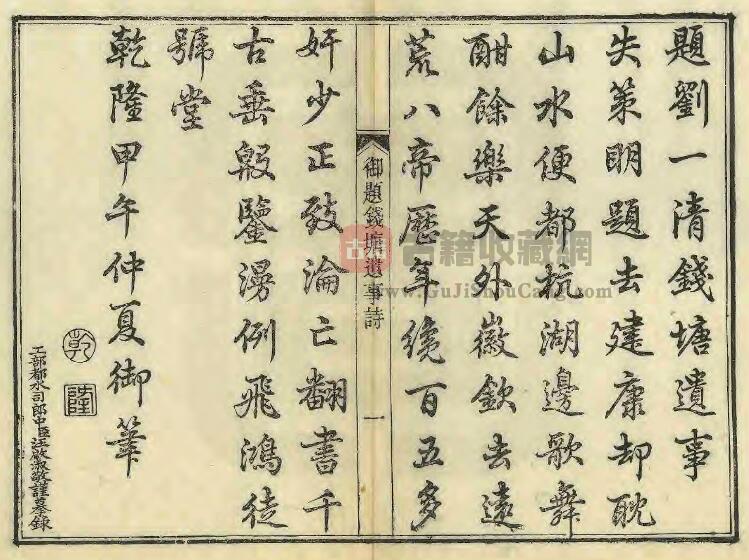 題劉一清錢塘遺事
失策明題去建康却耽
山水便都杭湖邊歌舞
酣餘樂天外徽欽去遠
荒八帝歷年纔百五多
御題錢塘遺事詩 一
奸少正致淪亡翻書千
古垂殷鑒漫例飛鴻徒
號堂
乾隆甲午仲夏御筆
乾
隆
工部都水司郎中臣汪啟淑敬謹摹錄
古籍收藏網
www.GuJiShouCang.com